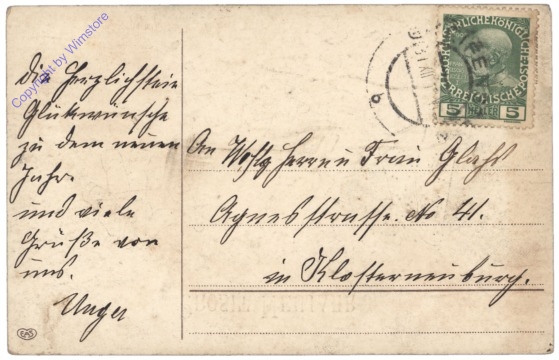 Die Herzlichsten
Glückwünsche
zu dem neuen
Jahr.
und viele
Grüße von
uns.
Unger
An Wohlg Herrn u Frau
Agnesstrasse. No 41.
in Klosterneuburg.
KAISERLICHE KÖNIGLICHE
ÖSTERREICHISCHE POST
5 HELLER 5
Copyright by Wimstore